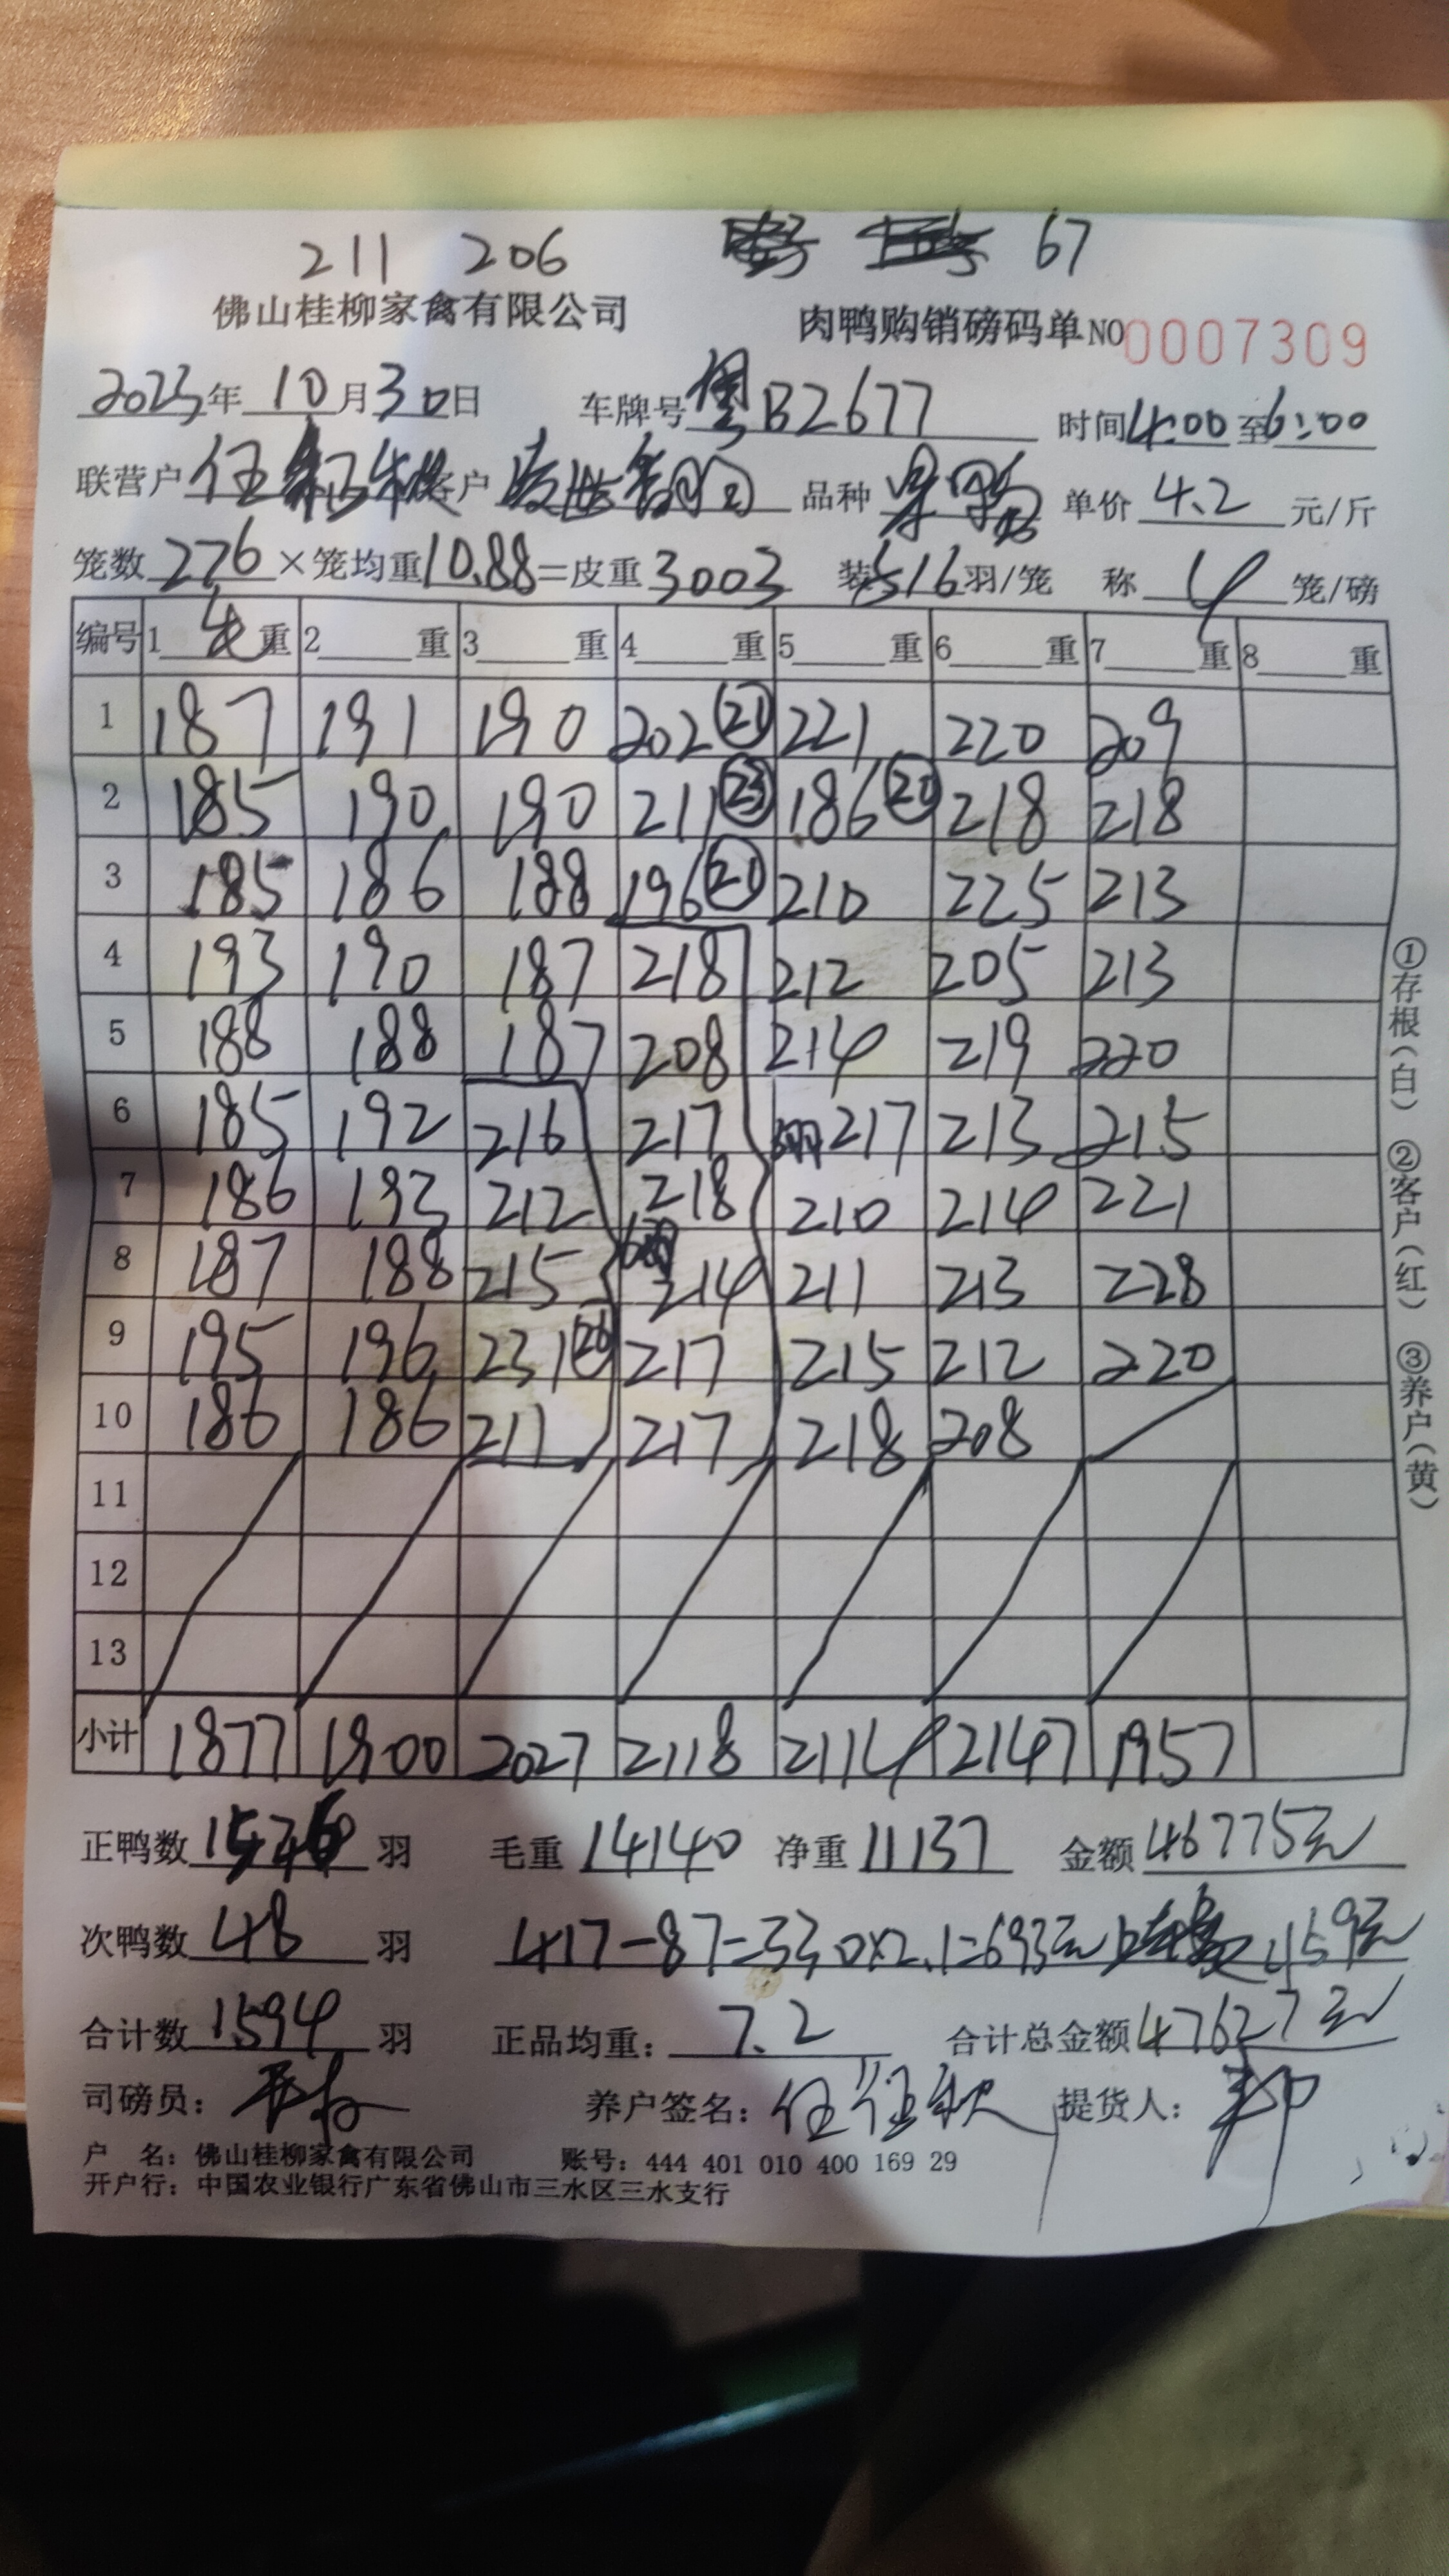 211 206 67
佛山桂柳家禽有限公司 肉鸭购销磅码单 NO 0007309
2023年 10月30日 车牌号 粤B2677 时间 4:00 至 6:00
联营户 任 客户 品种 单价 4.2 元/斤
笼数 276 ×笼均重 10.88 =皮重 3003 装 5/6 羽/笼 称 4 笼/磅
编号 1 重 2 重 3 重 4 重 5 重 6 重 7 重 8 重
1 187 191 190 202 (21) 221 220 209
2 185 190 190 211 (23) 186 (20) 218 218
3 185 186 188 196 (21) 210 225 213
4 193 190 187 218 212 205 213
5 188 188 187 208 214 219 220
6 185 192 216 217 217 213 215
7 186 193 212 218 210 214 221
8 187 188 215 214 211 213 228
9 195 196 231 (26) 217 215 212 220
10 186 186 211 217 218 208
11
12
13
小计 1877 1900 2027 2118 2114 2147 1957
正鸭数 羽 毛重 14140 净重 11137 金额 46775元
次鸭数 48 羽 417-87=330×2.1=693元 159元
合计数 1594 羽 正品均重: 7.2 合计总金额 47627元
司磅员: 养户签名: 任 提货人:
户 名: 佛山桂柳家禽有限公司 账号: 444 401 010 400 169 29
开户行: 中国农业银行广东省佛山市三水区三水支行
①存根(白) ②客户(红) ③养户(黄)